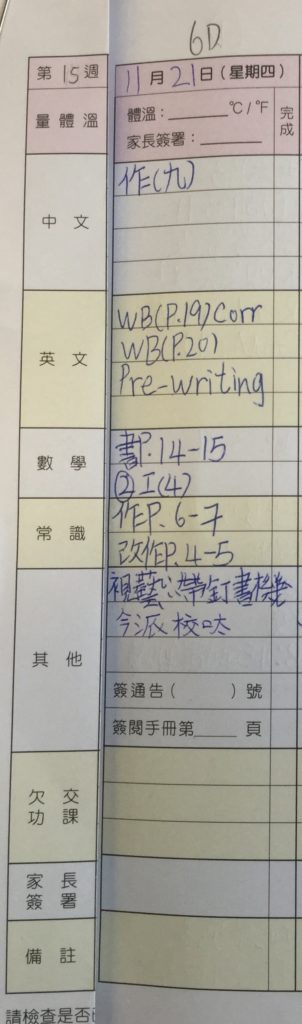 6D
第15週 11月21日(星期四)
量體溫 體溫:______℃/℉ 完成
家長簽署:______
中文 作(九)
英文 WB(P.19)Corr
WB(P.20)
Pre-writing
數學 書P.14-15
②I(4)
常識 作P.6-7
改作P.4-5
其他 視藝:帶釘書機
今派校呔
簽通告( )號
簽閱手冊第____頁
欠交功課
家長簽署
備註
請檢查是否